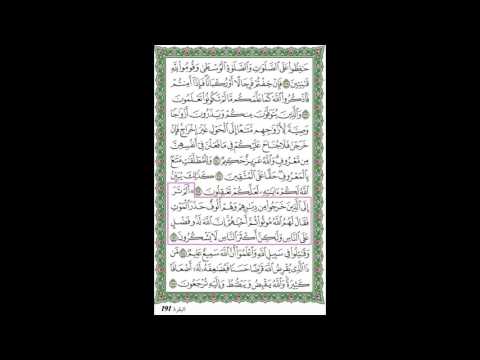 حَٰفِظُوا۟ عَلَى ٱلصَّلَوَٰتِ وَٱلصَّلَوٰةِ ٱلْوُسْطَىٰ وَقُومُوا۟ لِلَّهِ
قَٰنِتِينَ ۝ فَإِنْ خِفْتُمْ فَرِجَالًا أَوْ رُكْبَانًا فَإِذَآ أَمِنتُمْ
فَٱذْكُرُوا۟ ٱللَّهَ كَمَا عَلَّمَكُم مَّا لَمْ تَكُونُوا۟ تَعْلَمُونَ
۝ وَٱلَّذِينَ يُتَوَفَّوْنَ مِنكُمْ وَيَذَرُونَ أَزْوَٰجًا
وَصِيَّةً لِّأَزْوَٰجِهِم مَّتَٰعًا إِلَى ٱلْحَوْلِ غَيْرَ إِخْرَاجٍ فَإِنْ
خَرَجْنَ فَلَا جُنَاحَ عَلَيْكُمْ فِى مَا فَعَلْنَ فِىٓ أَنفُسِهِنَّ
مِن مَّعْرُوفٍ وَٱللَّهُ عَزِيزٌ حَكِيمٌ ۝ وَلِلْمُطَلَّقَٰتِ مَتَٰعٌۢ
بِٱلْمَعْرُوفِ حَقًّا عَلَى ٱلْمُتَّقِينَ ۝ كَذَٰلِكَ يُبَيِّنُ
ٱللَّهُ لَكُمْ ءَايَٰتِهِۦ لَعَلَّكُمْ تَعْقِلُونَ ۝ ۞ أَلَمْ تَرَ
إِلَى ٱلَّذِينَ خَرَجُوا۟ مِن دِيَٰرِهِمْ وَهُمْ أُلُوفٌ حَذَرَ ٱلْمَوْتِ
فَقَالَ لَهُمُ ٱللَّهُ مُوتُوا۟ ثُمَّ أَحْيَٰهُمْ إِنَّ ٱللَّهَ لَذُو فَضْلٍ
عَلَى ٱلنَّاسِ وَلَٰكِنَّ أَكْثَرَ ٱلنَّاسِ لَا يَشْكُرُونَ ۝
وَقَٰتِلُوا۟ فِى سَبِيلِ ٱللَّهِ وَٱعْلَمُوٓا۟ أَنَّ ٱللَّهَ سَمِيعٌ عَلِيمٌ ۝ مَّن
ذَا ٱلَّذِى يُقْرِضُ ٱللَّهَ قَرْضًا حَسَنًا فَيُضَٰعِفَهُۥ لَهُۥٓ أَضْعَافًا
كَثِيرَةً وَٱللَّهُ يَقْبِضُ وَيَبْصُۜطُ وَإِلَيْهِ تُرْجَعُونَ ۝
البقرة 191